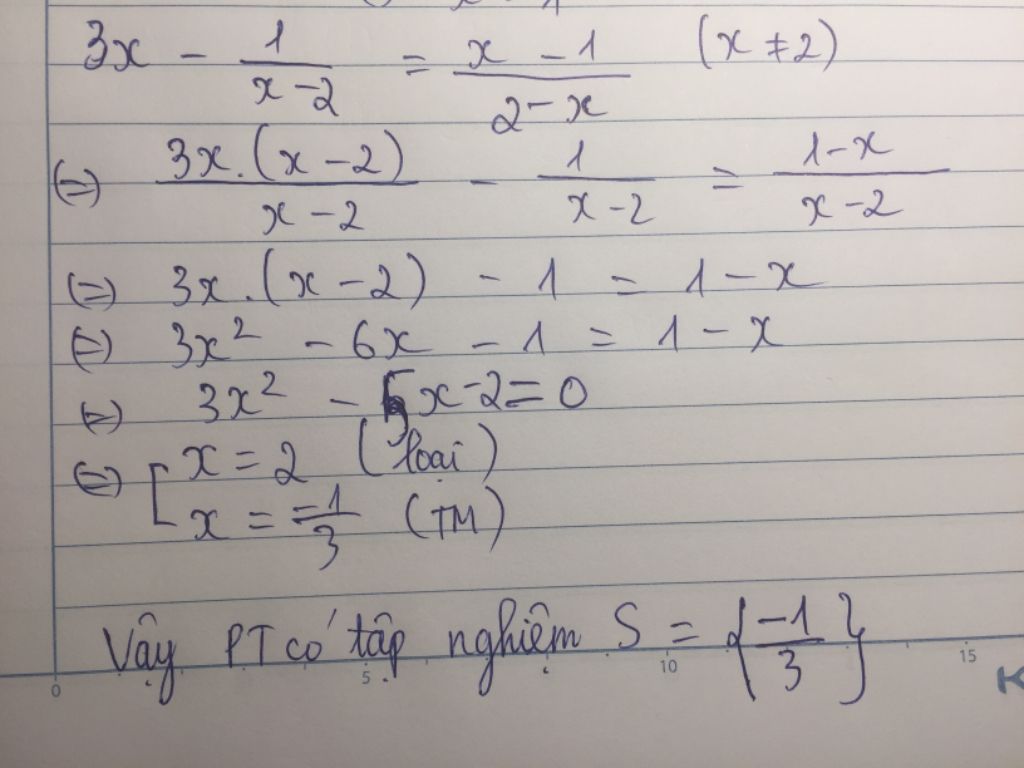 3x - 1/(x-2) = (x-1)/(2-x) (x ≠ 2)
(=) 3x.(x-2)/(x-2) - 1/(x-2) = (1-x)/(x-2)
(=) 3x.(x-2) - 1 = 1 - x
(=) 3x² - 6x - 1 = 1 - x
(=) 3x² - 5x - 2 = 0
(=) [ x = 2 (loại)
x = -1/3 (TM)
Vậy PT có tập nghiệm S = {-1/3}
0 5 10 15 K